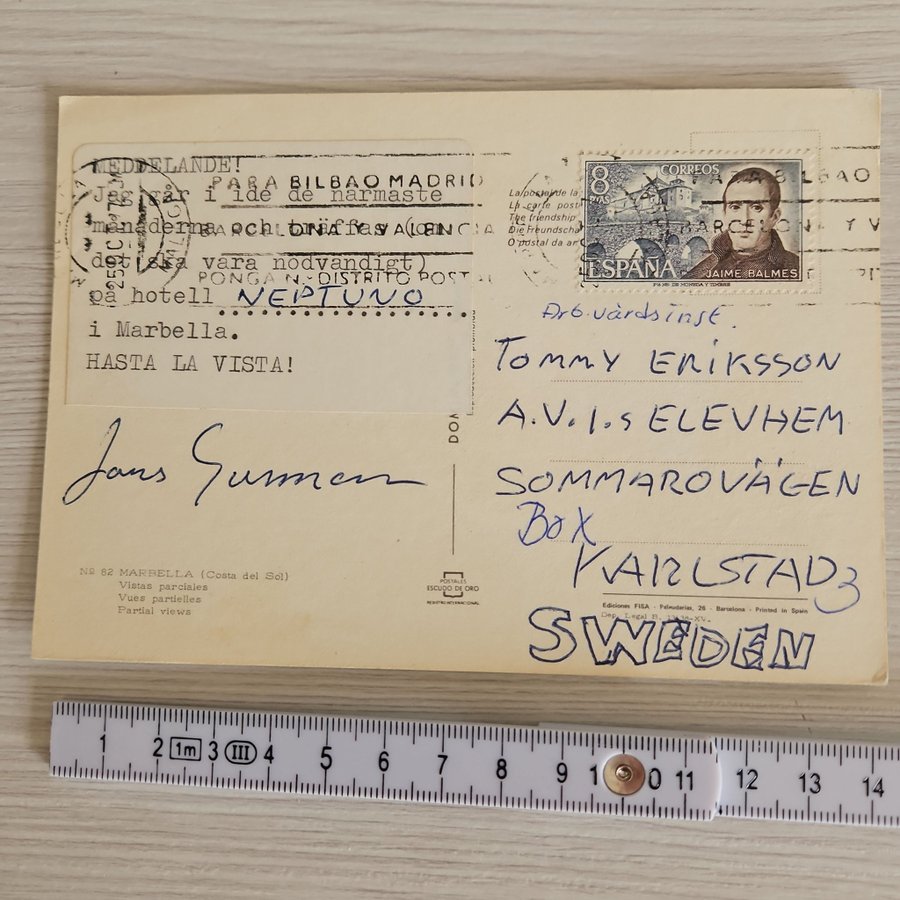 MEDDELANDE!
Jag går i ide de närmaste
månaderna och träffas (om
det ska vara nödvändigt)
på hotell NEPTUNO
i Marbella.
HASTA LA VISTA!
PARA BILBAO MADRID
BARCELONA Y VALENCIA
PONGA N.º DISTRITO POSTAL
25 OCT
8
PTAS
CORREOS
ESPAÑA
JAIME BALMES
PARA BILBAO
BARCELONA Y V
La postal de la
La carte post
The friendship
Die Freundscha
O postal da am
Arb.vårdsinst.
TOMMY ERIKSSON
A.V.I.s ELEVHEM
SOMMAROVÄGEN
BOX
KARLSTAD 3
SWEDEN
Nº 82 MARBELLA (Costa del Sol)
Vistas parciales
Vues partielles
Partial views
POSTALES
ESCUDO DE ORO
REGISTRO INTERNACIONAL
Ediciones FISA - Palaudarias, 26 - Barcelona - Printed in Spain
Dep. Legal B.
1 2 1m 3 III 4 5 6 7 8 9 10 11 12 13 14